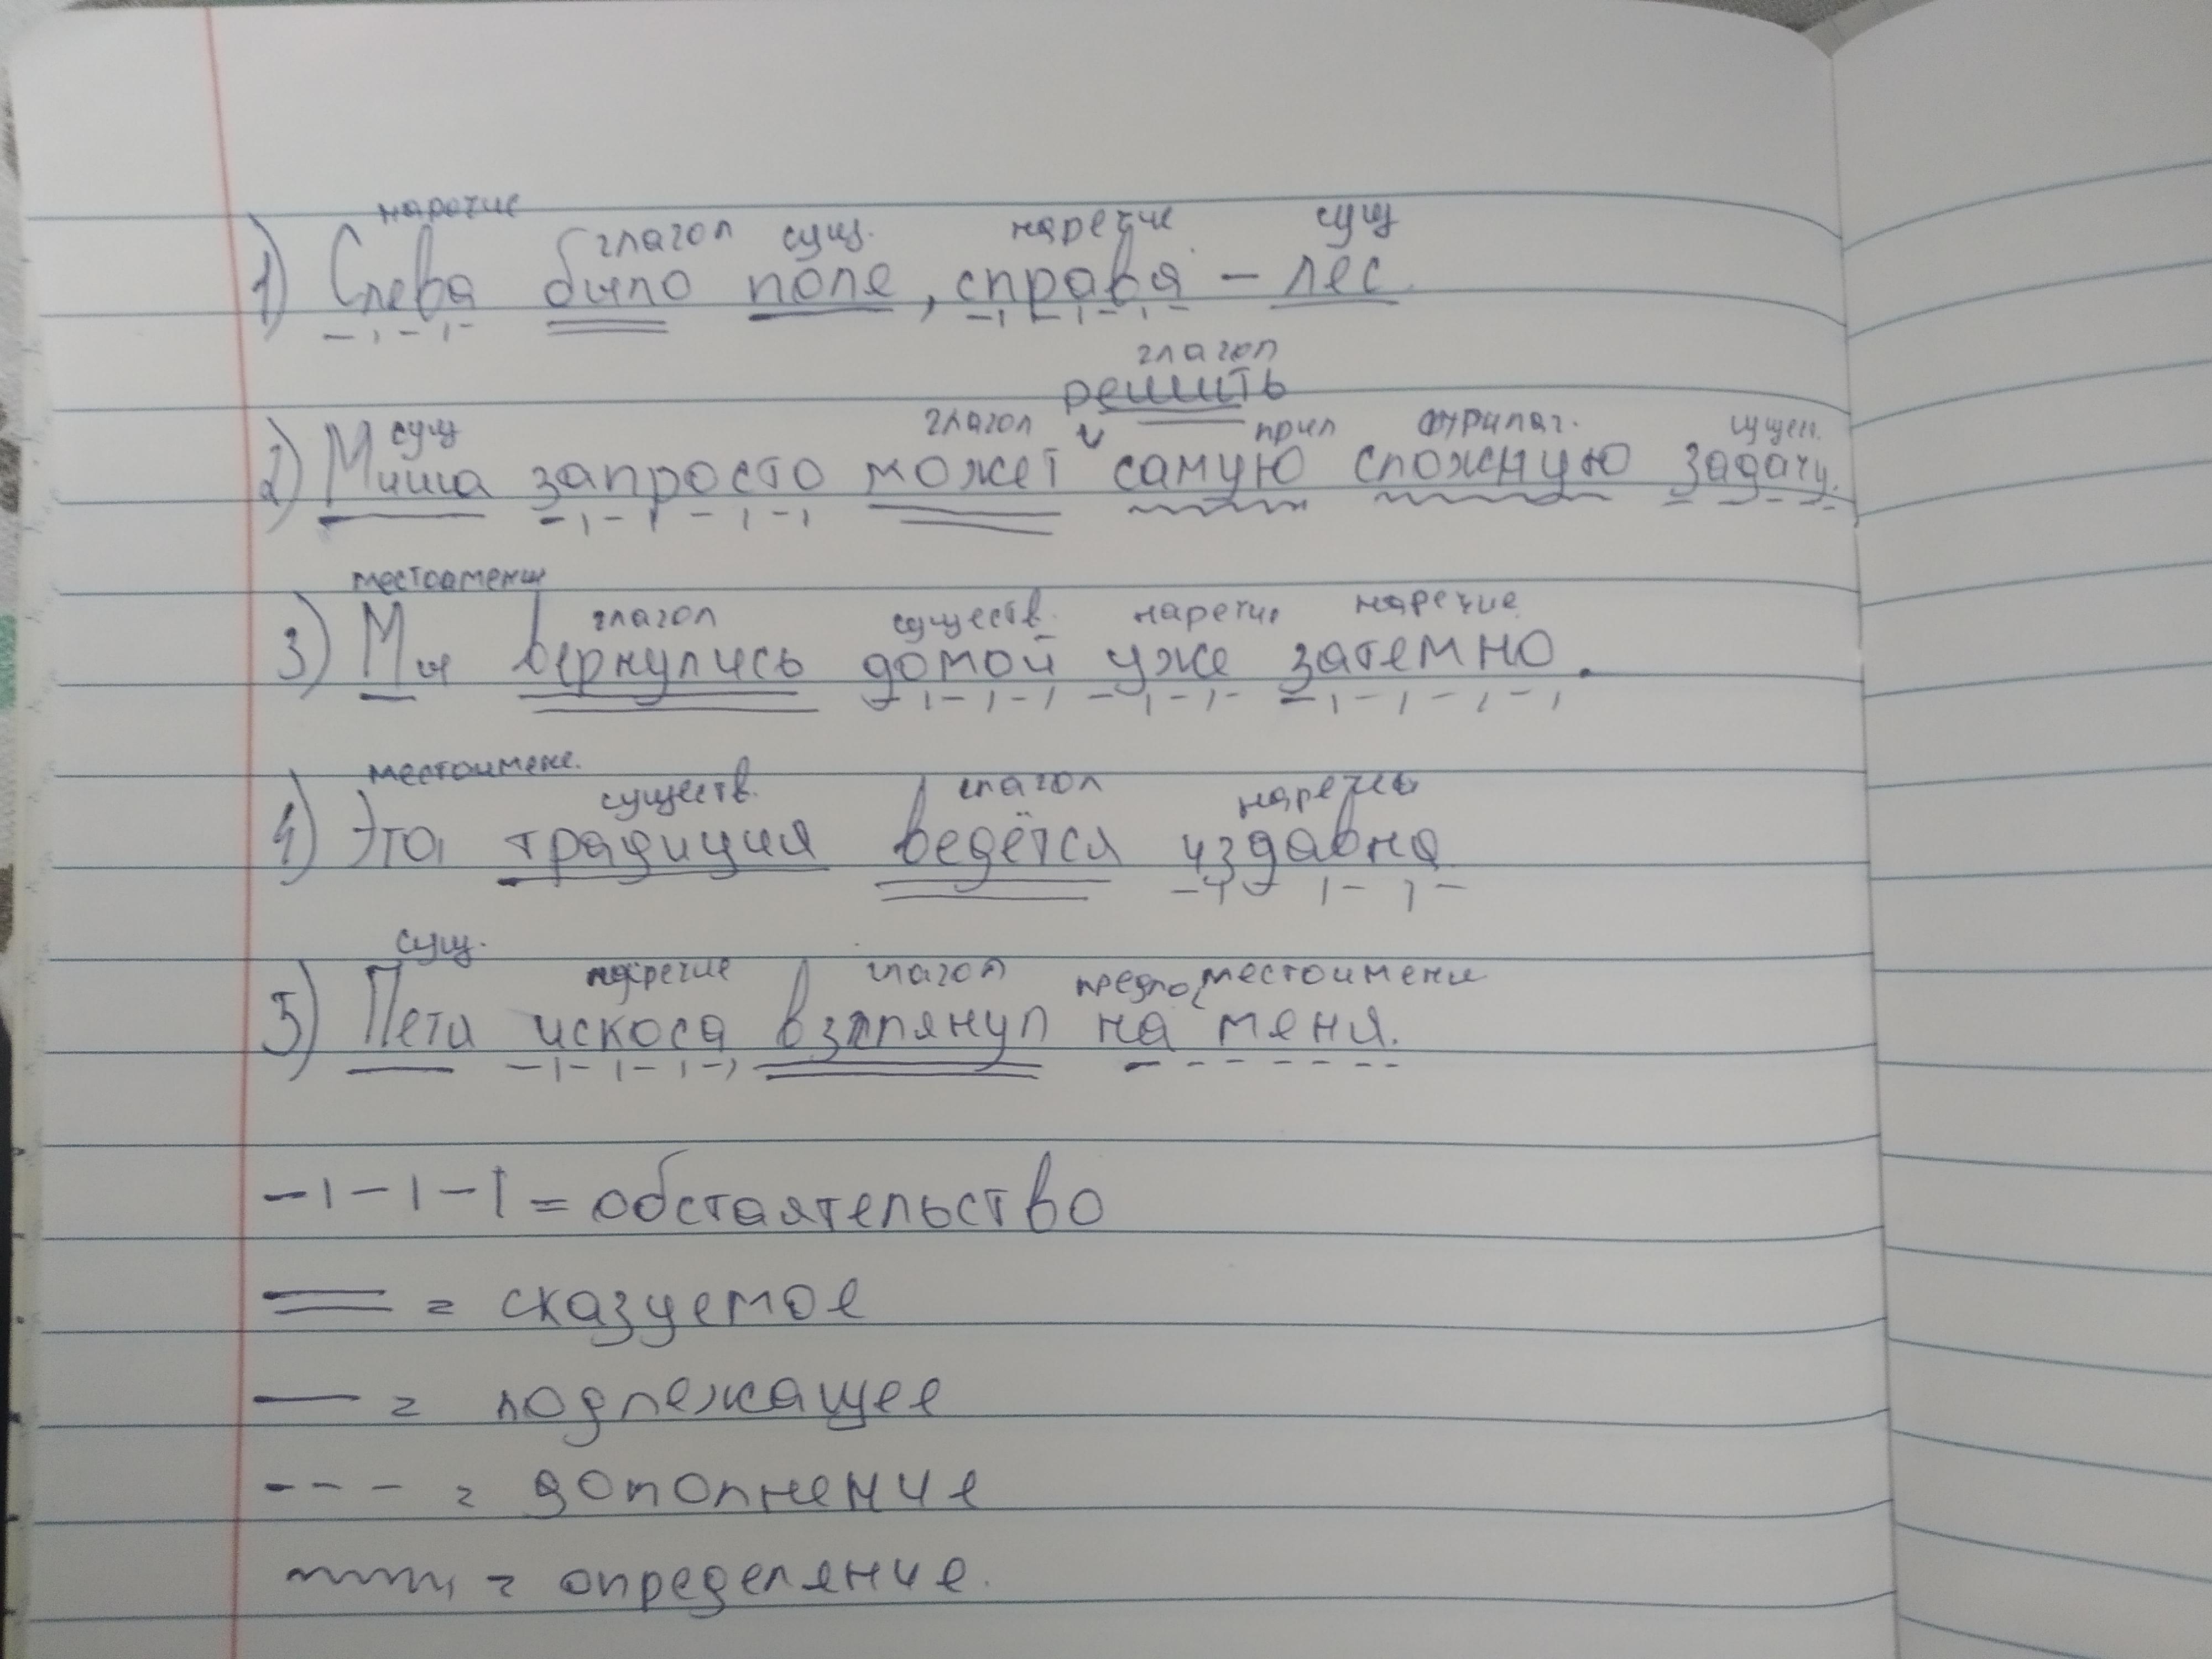 наречие глагол сущ. наречие сущ
1) Слева было поле, справа – лес.
глагол
решить
сущ глагол прил прилаг. сущен.
2) Миша запросто может самую сложную задачу.
местоимени
глагол существ. наречие наречие
3) Мы вернулись домой уже затемно.
местоимене.
существ. глагол наречие
4) Эта традиция ведётся издавна
сущ.
наречие глагол предлог местоимени
5) Петя искоса взглянул на меня.
-ı-ı-ı = обстаятельство
= сказуемое
— = подлежащее
--- = дополнение
= определение.